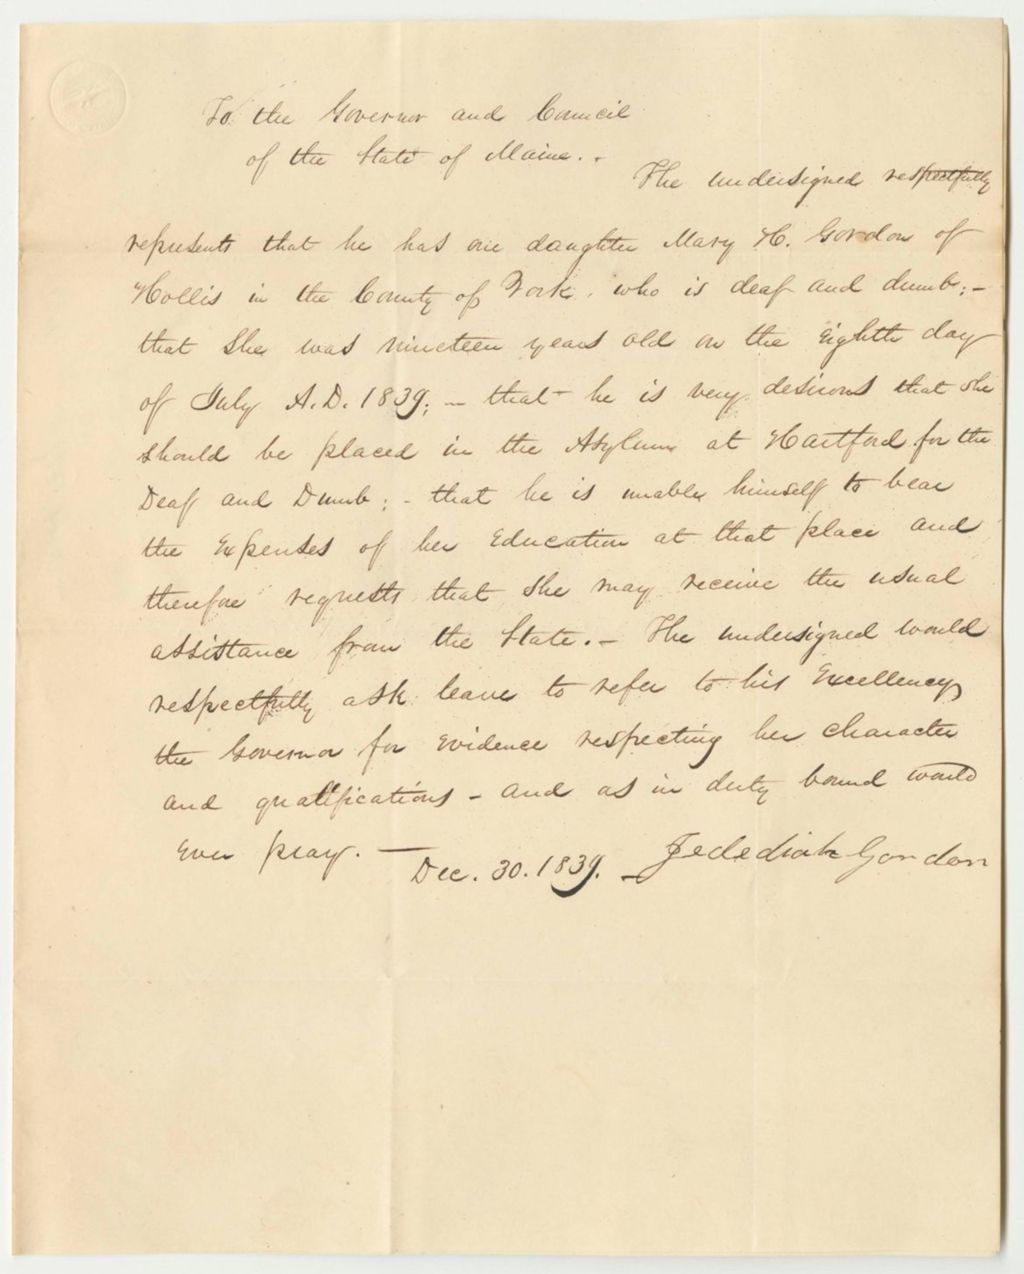 To the Governor and Council
of the State of Maine. -
The undersigned respectfully
represents that he has one daughter Mary H. Gordon of
Hollis in the County of York, who is deaf and dumb; -
that she was nineteen years old on the Eighth day
of July A.D. 1839; - that he is very desirous that she
should be placed in the Asylum at Hartford for the
Deaf and Dumb; - that he is unable himself to bear
the Expenses of her Education at that place and
therefore requests that she may receive the usual
assistance from the State. - The undersigned would
respectfully ask leave to refer to his Excellency
the Governor for Evidence respecting her character
and qualifications - and as in duty bound would
Ever pray. -
Dec. 30. 1839. - Jedediah Gordon